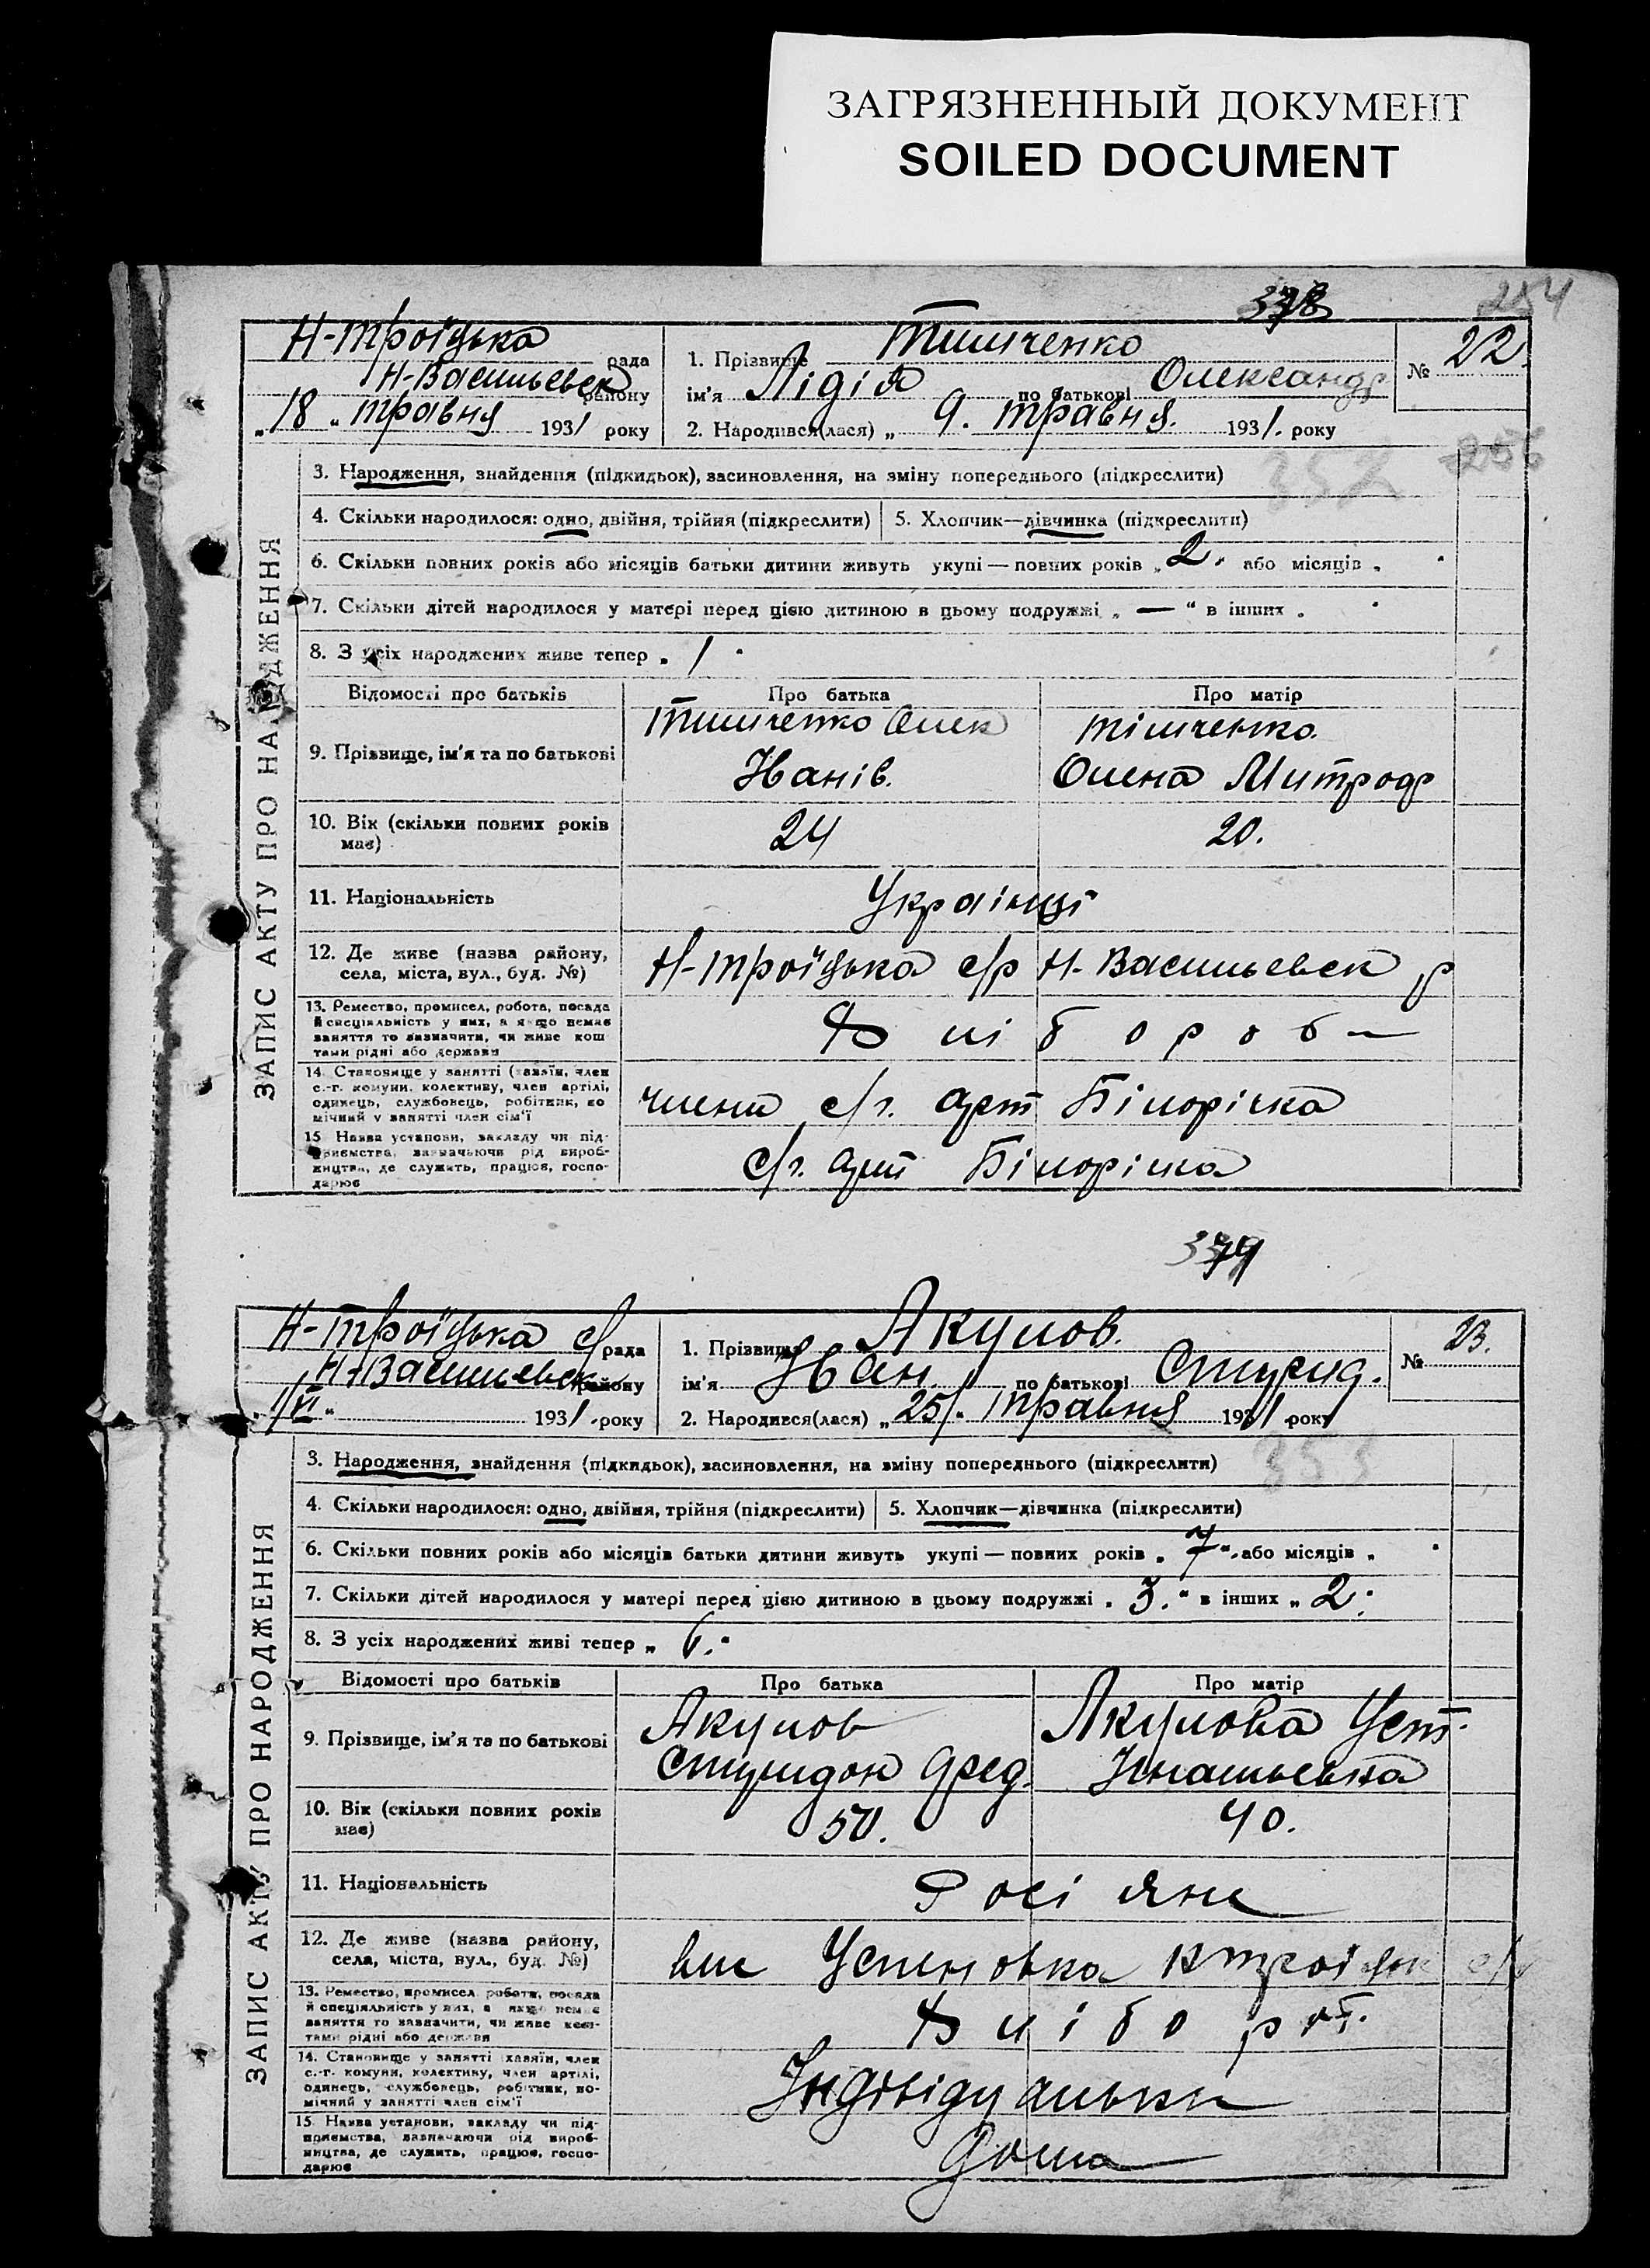 ЗАГРЯЗНЕННЫЙ ДОКУМЕНТ
SOILED DOCUMENT
378
254
Н-Троїцька рада
Н-Васильевск району
„18„ травня 1931 року
1. Прізвище Тимченко
ім'я Лідія по батькові Олександр
2. Народився(лася) „ 9. травня. 1931. року
№ 22.
256
352
ЗАПИС АКТУ ПРО НАРОДЖЕННЯ
3. Народження, знайдення (підкидьок), засиновлення, на зміну попереднього (підкреслити)
4. Скільки народилося: одно, двійня, трійня (підкреслити) 5. Хлопчик—дівчинка (підкреслити)
6. Скільки повних років або місяців батьки дитини живуть укупі — повних років „ 2 " або місяців „ "
7. Скільки дітей народилося у матері перед цією дитиною в цьому подружжі „ — " в інших „ "
8. З усіх народжених живе тепер „ 1 "
Відомості про батьків Про батька Про матір
9. Прізвище, ім'я та по батькові
Тимченко Олек
Іванів.
Тімченко
Олена Митроф
10. Вік (скільки повних років має)
24 20.
11. Національність Українці
12. Де живе (назва району,
села, міста, вул., буд. №)
Н-Троїцька с/р Н-Васильевск р
13. Ремество, промисел, робота, посада
й спеціяльність у них, а якщо немає
заняття то зазначити, чи живе кош
тами рідні або держави
Хлібороб
14. Становище у занятті (хазяїн, член
с.-г. комуни, колективу, член артілі,
одинець, службовець, робітник, по
мічний у занятті член сім'ї
члени с/г. арт Білорічка
15 Назва установи, закладу чи під-
приємства, зазначаючи рід вироб-
ництва, де служить, працює, госпо-
дарює
с/г. арт Білорічка
379
Н-Троїцька с/рада
Н-Васильевск району
1/VI „ 1931 року
1. Прізвище Акулов.
ім'я Іван по батькові Спирид.
2. Народився(лася) „25„ травня 1931 року
№ 23.
353
ЗАПИС АКТУ ПРО НАРОДЖЕННЯ
3. Народження, знайдення (підкидьок), засиновлення, на зміну попереднього (підкреслити)
4. Скільки народилося: одно, двійня, трійня (підкреслити) 5. Хлопчик—дівчинка (підкреслити)
6. Скільки повних років або місяців батьки дитини живуть укупі — повних років „ 7 " або місяців „ "
7. Скільки дітей народилося у матері перед цією дитиною в цьому подружжі „ 3. " в інших „ 2 "
8. З усіх народжених живі тепер „ 6. "
Відомості про батьків Про батька Про матір
9. Прізвище, ім'я та по батькові
Акулов
Спиридон Фед.
Акулова Уст.
Ігнатьевна
10. Вік (скільки повних років має)
50. 40.
11. Національність Росіяне
12. Де живе (назва району,
села, міста, вул., буд. №)
Успеновка Нтроїцьк с/р
13. Ремество, промисел, робота, посада
й спеціяльність у них, а якщо немає
заняття то зазначити, чи живе кош-
тами рідні або держави
Хлібороб.
14. Становище у занятті (хазяїн, член
с.-г. комуни, колективу, член артілі,
одинець, службовець, робітник, по-
мічний у занятті член сім'ї
Індівідуальни
15 Назва установи, закладу чи під-
приємства, зазначаючи рід вироб-
ництва, де служить, працює, госпо-
дарює
Дома